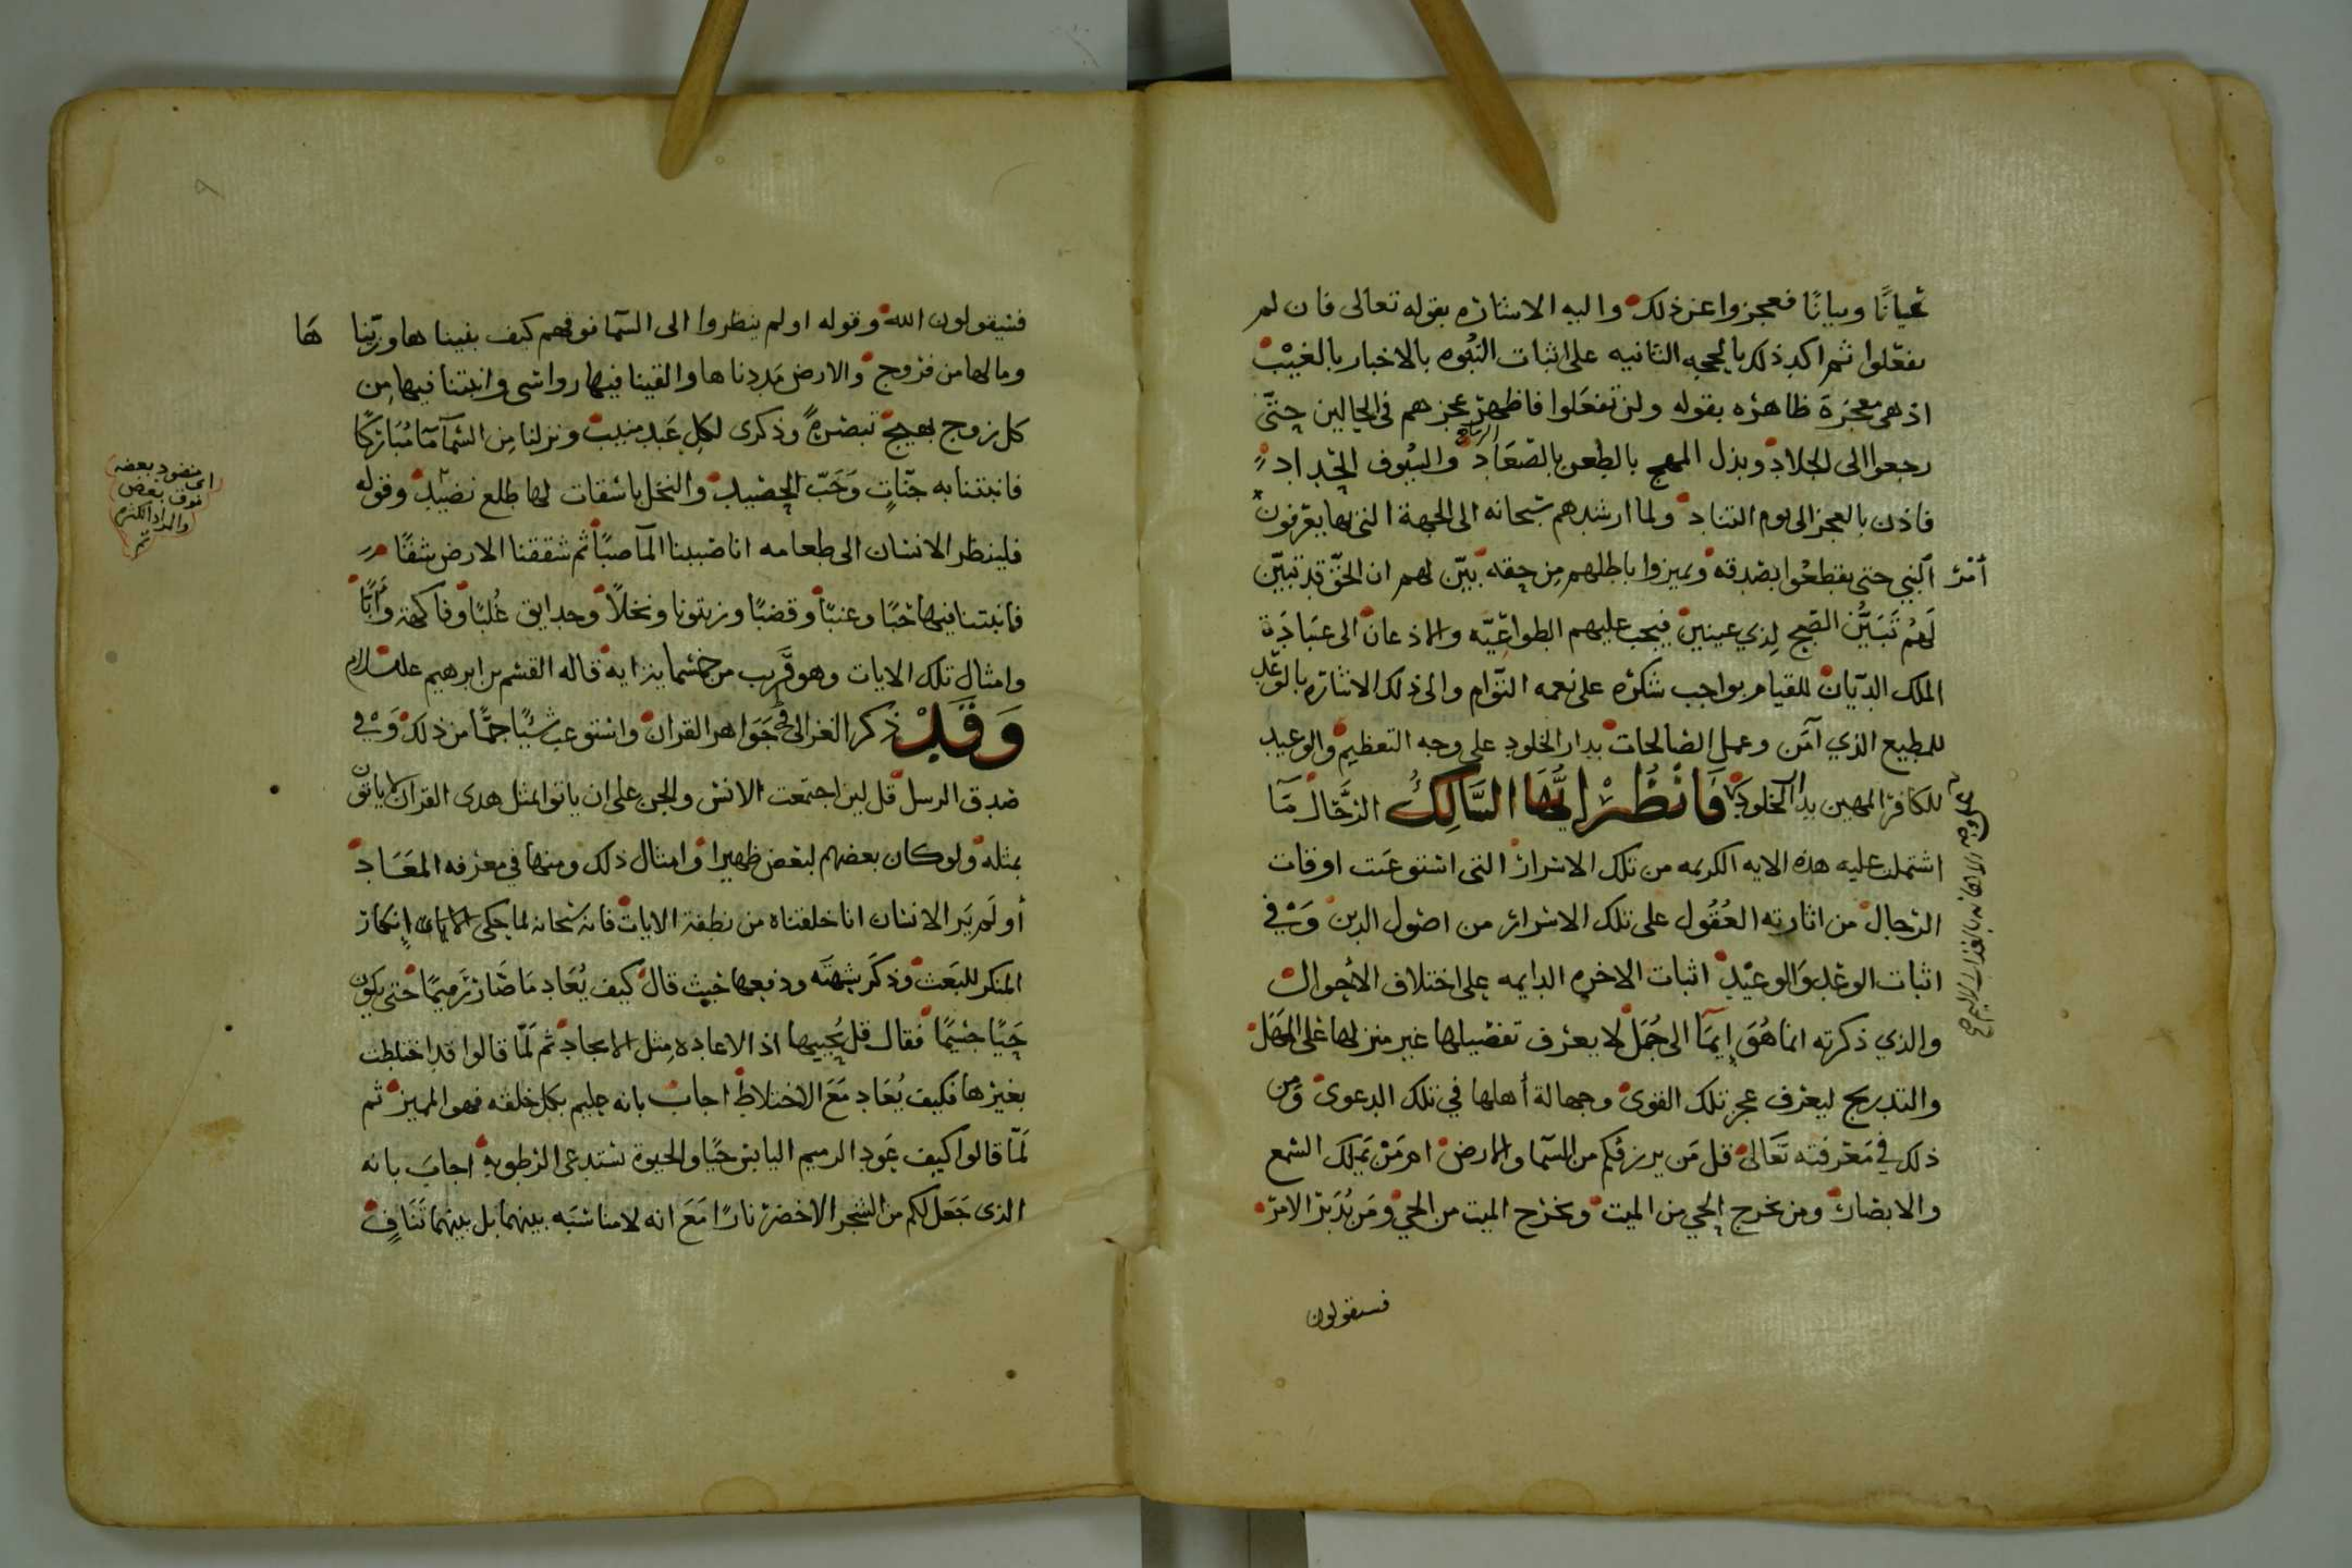 عيانًا وبيانًا فعجزوا عن ذلك واليه الاشاره بقوله تعالى فان لم
تفعلوا ثم اكد ذلك بالحجه الثانيه على اثبات النبوه بالاخبار بالغيب
اذ هي معجزة ظاهره بقوله ولن تفعلوا فاظهر عجزهم في الحالين حتى
رجعوا الى الجلاد وبذل المهج بالطعن بالصعاد والسيوف الحداد
فاذن بالعجز الى يوم التناد ولما ارشدهم سبحانه الى الجهة التي بها يعرفون
أمر
النبي حتى يقطعوا بصدقه ويميزوا باطلهم من حقه بيّن لهم ان الحق قد تبيّن
لهم تَبَيُّن الصبح لذي عينين فيجب عليهم الطواعيّه والاذعان الى عبادة
الملك الديّان للقيام بواجب شكره على نعمه التوام والى ذلك الاشاره بالوعد
للمطيع الذي آمن وعمل الصالحات بدار الخلود على وجه التعظيم والوعيد
للكافر المهين بدار الخلود فَانْظُرْ ايُّهَا السَّالِكُ الرحّال مَا
اشتملت عليه هذه الايه الكريمه من تلك الاسرار التي استوعبت اوقات
الرجال من اثارته العُقُول على تلك الاسرار من اصول الدين وَفي
اثبات الوعد وَالوعيد اثبات الاخره الدايمه على اختلاف الأحوال
والذي ذكرته انما هُوَ إيمَا الى جُمَل لا يعرف تفصيلها غير منزلها على المهَل
والتدريج ليعرف عجز تلك القوى وجهالة أهلها في تلك الدعوى وَمن
ذلك في مَعْرفته تَعَالى قل مَن يرزقكم من السما والارض امر مَنْ يَملك السمع
والابصار ومن يخرج الحي من الميت ويخرج الميت من الحي ومَن يُدَبّر الامرَ
فسيقولون
فسيقولون الله وقوله اولم ينظروا الى السّما فوقهم كيف بنيناها وزيّنا
هَا
ومالها من فروج والارض مَددناها والقينا فيها رواسى وانبتنا فيها مِن
كل زوج بهيج تبصرةً وذكرى لكلِ عَبد منيب ونزلنا مِن السّمآ مآ مُبَاركًا
فانبتنا به جنّاتٍ وَحَبّ الحصيد والنخل باسقات لها طلع نضيد وقوله
اى منضود بعضه
فوق بعض
والمراد الكثره
تمر
فلينظر الانسان الى طعامه انا صببنا المآ صبًا ثم شققنا الارض شقًا
فانبتنا فيها حبًا وعنبًا وقضبًا وزيتونا ونخلاً وحدايق غُلبًا وفاكهة وأبًا
وامثال تلك الايات وهو قَريب من خمسماية اية قاله القسم بن ابرهيم عليه السلام
وَقَدْ ذكر الغزالى في جَوَاهر القران واستوعب شيًا جمًّا من ذلك وَفي
صدق الرسل قل لين اجتمعت الانس والجن على ان ياتوا بمثل هدى القرآن لا ياتون
بمثله ولو كان بعضهم لبعض ظهيرا وامثال ذلك ومنها في معرفه المعَاد
أولم يَر الانسان انا خلقناه من نطفة الايات فانه سبحانه لما حكى إنكار
المنكر للبَعث وذكَر شبهته ودفعها حَيث قال كيف يُعَاد مَا صَار رَميمًا حتى يكون
حَيًا جسيمًا فقال قل يُحييها اذ الاعاده مثل الايجاد ثم لَمّا قالوا قد اختلطت
بغيرها فكيف يُعَاد مَعَ الاختلاط اجاب بانه عليم بكل خلقه فهو المميز ثم
لَمّا قالوا كيف عَود الرميم اليابس حَيًا والحيوة تستدعى الرطوبه اجابَ بانه
الذى جَعَل لكم من الشجر الاخضر نارًا مَعَ انه لا مناسَبَه بينهما بل بينهما تَنَافٍ